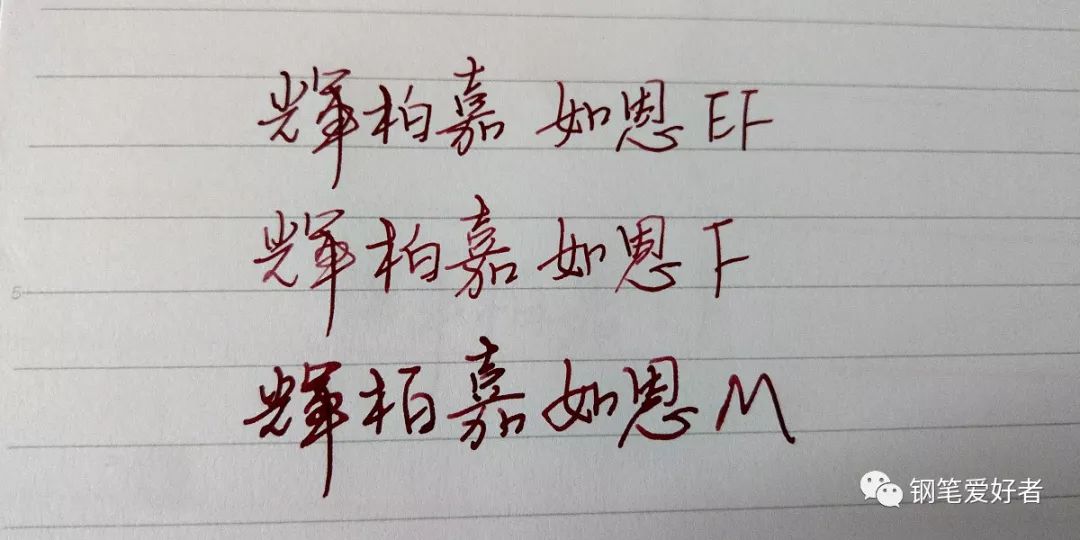 輝柏嘉 如恩 EF
輝柏嘉 如恩 F
輝柏嘉 如恩 M
5
钢笔爱好者